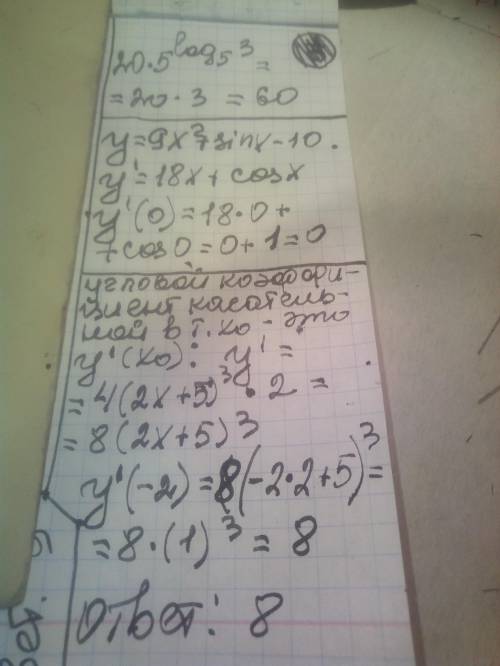 20·5^log₅3 =
= 20 · 3 = 60
y = 9x²+sinx-10.
y' = 18x + cosx
y'(0) = 18·0 +
+ cos0 = 0 + 1 = 0
угловой коэффи-
циент касатель-
ной в т. x₀ - это
y'(x₀): y' =
= 4(2x+5)³ · 2 =
= 8(2x+5)³
y'(-2) = 8(-2·2+5)³ =
= 8·(1)³ = 8
Ответ: 8